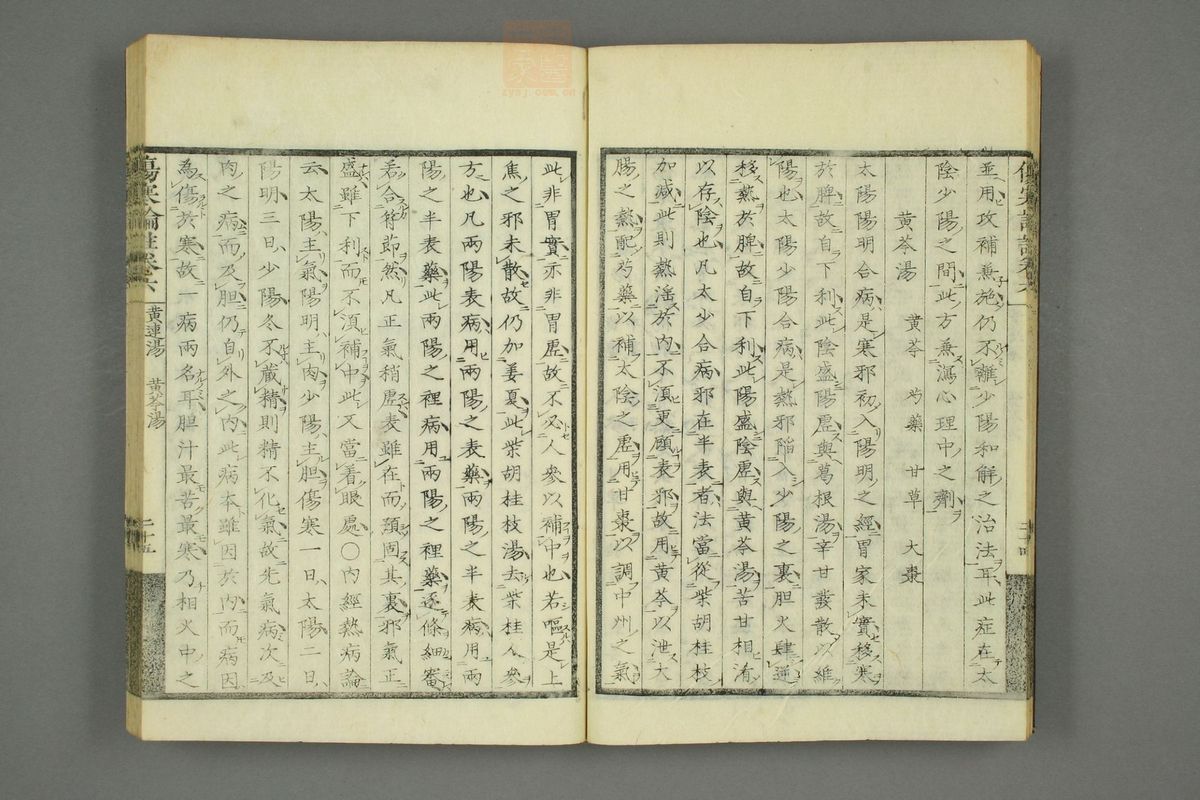 並用攻補兼施仍不離少陽和解之治法耳此症在太
陰少陽之間此方兼瀉心理中之劑
黄芩湯
黄芩 芍藥 甘草 大棗
太陽陽明合病是寒邪初入陽明之經胃家未實移寒
於脾故自下利此陰盛陽虛與葛根湯辛甘發散以維
陽也太陽少陽合病是熱邪陷入少陽之裏胆火肆逆
移熱於脾故自下利此陽盛陰虛與黄芩湯苦甘相淆
以存陰也凡太少合病邪在半表者法當從柴胡桂枝
加減此則熱淫於内不須更顧表邪故用黄芩以泄大
腸之熱配芍藥以補太陰之虛用甘棗以調中州之氣
此非胃實亦非胃虛故不必人參以補中也若嘔是上
焦之邪未散故仍加姜夏此柴胡桂枝湯去柴桂人參
方也凡兩陽表病用兩陽之表藥兩陽之半表病用兩
陽之半表藥此兩陽之裡病用兩陽之裡藥逐條細審
若合符節然凡正氣稍虛表雖在而預固其裏邪氣正
盛雖下利而不須補中此又當着眼處〇内經熱病論
云太陽主氣陽明主肉少陽主胆傷寒一日太陽二日
陽明三日少陽冬不藏精則精不化氣故先氣病次及
肉之病而及胆仍自外之内此病本雖因於内而病因
為傷於寒故一病兩名耳胆汁最苦最寒乃相火中之
傷寒論註卷六 黄連湯 黄芩湯 二十五